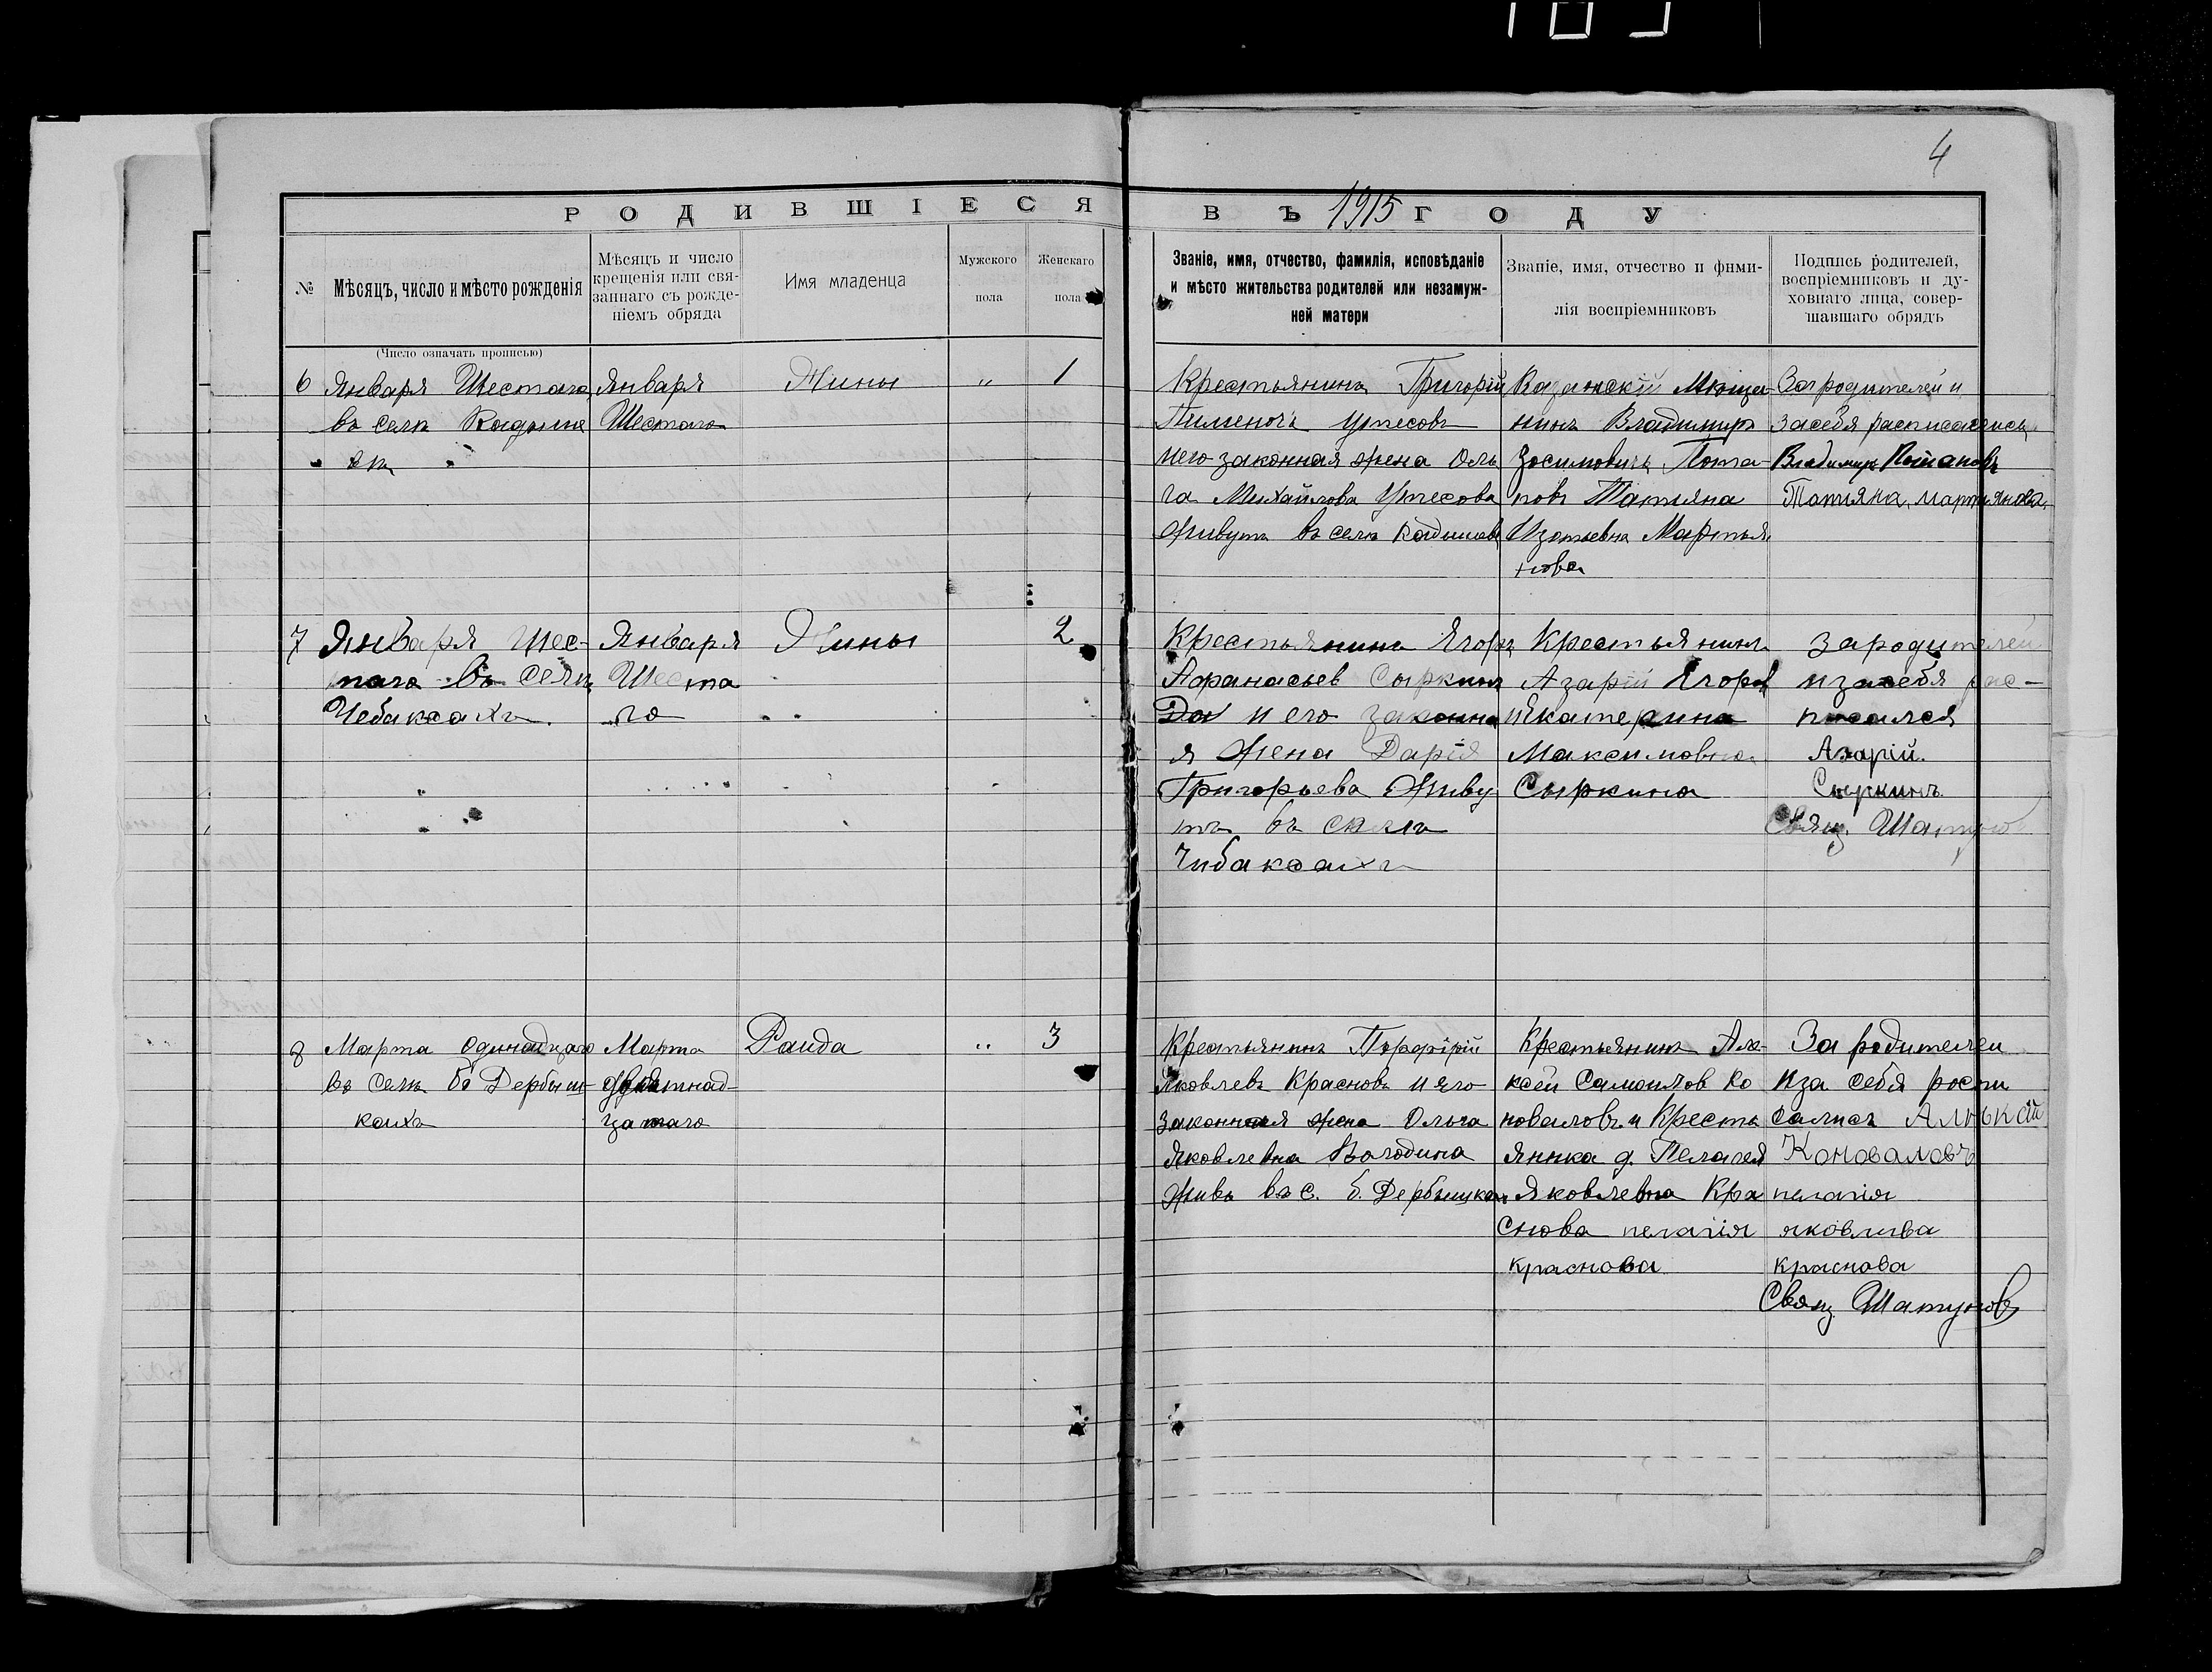 4
РОДИВШІЕСЯ ВЪ 1915 ГОДУ
№
Мѣсяцъ, число и мѣсто рожденія
Мѣсяцъ и число
крещенія или свя-
заннаго съ рожде-
ніемъ обряда
Имя младенца
Мужского
пола
Женскаго
пола
Званіе, имя, отчество, фамилія, исповѣданіе
и мѣсто жительства родителей или незамуж-
ней матери
Званіе, имя, отчество и фими-
лія воспріемниковъ
Подпись родителей,
воспріемниковъ и ду-
ховнаго лица, совер-
шавшаго обрядъ
(Число означать прописью)
6
Января Шестаго
въ селѣ Кадыше
вѣ
Января
Шестаго
Нины
"
1
Крестьянинъ Григорій
Пименочъ Утесовъ
иего законная жена Оль
га Михайлова Утесова
Живутъ въ селѣ Кадышевѣ
Казанскій Мѣща-
нинъ Владимиръ
Зосимовичъ Пота-
повъ Татьяна
Изотьевна Мартья
нова
За родителей и
засебя расписались
Владимиръ Потаповъ
Татияна, мартиянова,
7
Января Шес-
таго въ селѣ
Чебаксахъ.
Января
Шеста
го
Нины
2
Крестьянинъ Ягоръ
Афанасьев Сыркинъ
Да и его законна
я Жена Дарія
Григорьева Живу
тъ въ селѣ
Чибаксахъ
Крестьянинъ
Азарій Ягоров
иЯкатерина
Максимовна
Сыркина
За родителей
изасебя рас-
писался
Азарій.
Сыркинъ.
Свящ. Шатунов
8
Марта одинадцаго
въ Селѣ б Дербыш-
кахъ
Марта
цатаго
Раида
"
3
Крестьянинъ Порфірій
Яковлевъ Красновъ и его
законная жена Ольга
Яковлевна Володина
Живъ въ с. б. Дербышках
Крестьянинъ Але-
ксѣй Самоилов Ко
новаловъ и Кресть
янка д. Пелагея
Яковлевна Кра
снова пелагія
краснова
За родителеи
Иза себя распи
сались Алѣксій
Коноваловъ
пелагія
яковлива
краснова
Свящ. Шатунов